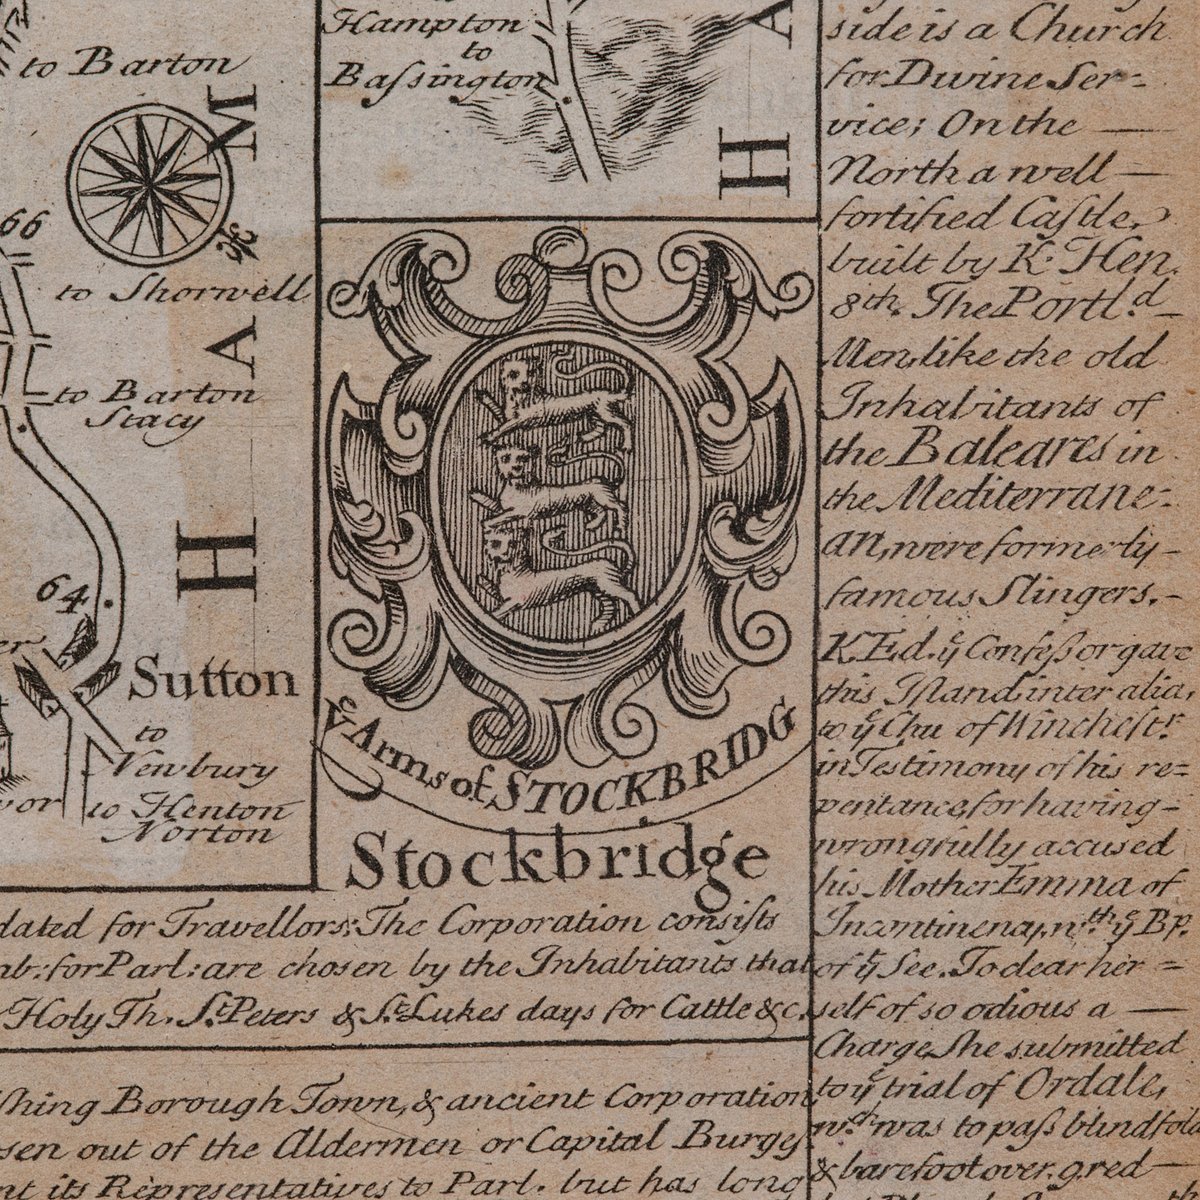 to Barton
M
66
to Shorwell
A
to Barton
Stacy
H
64
Sutton
to
Newbury
to Henton
Norton
Hampton
to
Baſsington
A
H
yᵉ Arms of STOCKBRIDG
Stockbridge
dated for Travellors: The Corporation consiſts
for Parl: are chosen by the Inhabitants that
Holy Th. Sᵗ. Peters & Sᵗ. Lukes days for Cattle &c.
ſhing Borough Town, & ancient Corporation
sen out of the Aldermen or Capital Burgeſ
nt its Representatives to Parl. but has long
side is a Church
for Divine Ser-
vice; On the
North a well
fortified Caſtle,
built by K. Hen.
8th. The Portlᵈ.
Men, like the old
Inhabitants of
the Baleares in
the Mediterrane-
an, were formerly
famous Slingers.
K. Ed. yᵉ Confeſsor gave
this Iſland inter alia,
to yᵉ Chu of Wincheſtʳ.
in Testimony of his re=
pentance, for having
wrongfully accused
his Mother Emma of
Incontinency, wᵗʰ yᵉ Bp.
of yᵉ See. To clear her
self of so odious a
Charge She submitted
to yᵉ trial of Ordale,
wᶜʰ was to paſs blindfold
& barefoot over. 9. red